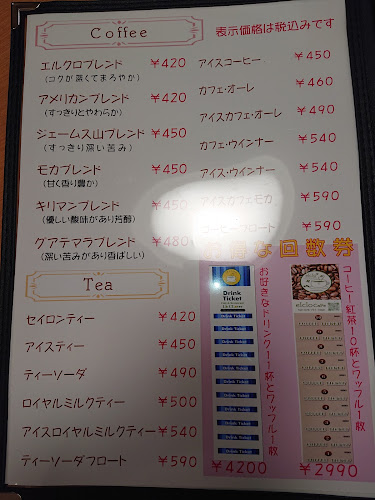 Coffee
表示価格は税込みです
エルクロブレンド ￥420
(コクが深くてまろやか)
アメリカンブレンド ￥420
(すっきりとやわらか)
ジェームス山ブレンド ￥450
(すっきり深い苦み)
モカブレンド ￥450
(甘く香り豊か)
キリマンブレンド ￥450
(優しい酸味があり芳醇)
グアテマラブレンド ￥480
(深い苦みがあり香ばしい)
アイスコーヒー ￥450
カフェ・オーレ ￥460
アイスカフェ・オーレ ￥490
カフェ・ウインナー ￥540
アイス・ウインナー ￥540
アイスカフェモカ ￥590
コーヒーフロート ￥590
Tea
セイロンティー ￥420
アイスティー ￥450
ティーソーダ ￥490
ロイヤルミルクティー ￥500
アイスロイヤルミルクティー ￥540
ティーソーダフロート ￥590
お得な回数券
Drink
Ticket
Drink Ticket
Drink Ticket
Drink Ticket
Drink Ticket
Drink Ticket
Drink Ticket
Drink Ticket
Drink Ticket
Drink Ticket
Drink Ticket
Drink Ticket
お好きなドリンク11杯とワッフル1枚
￥4200
コーヒー、紅茶10杯とワッフル1枚
￥2990